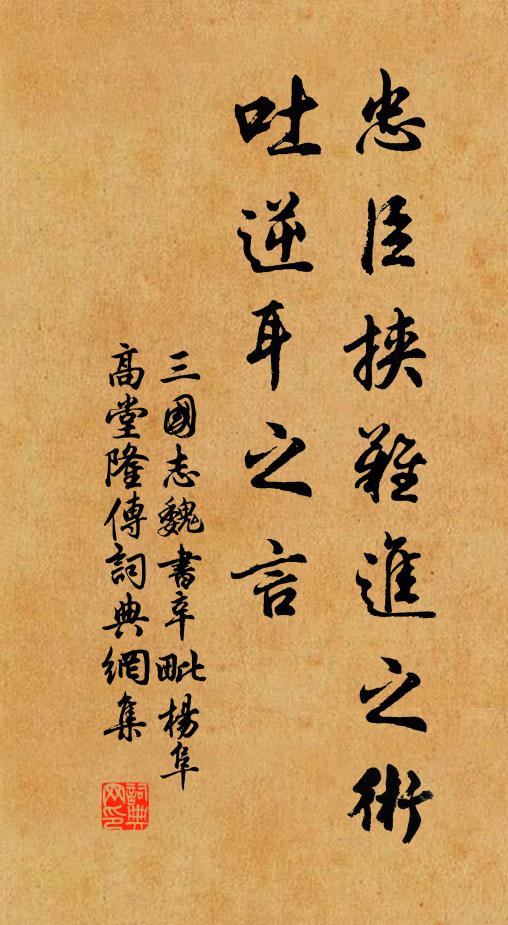 忠臣挾難進之術
吐逆耳之言
三國志魏書辛毗楊阜
高堂隆傳詞典網集
詞典网印